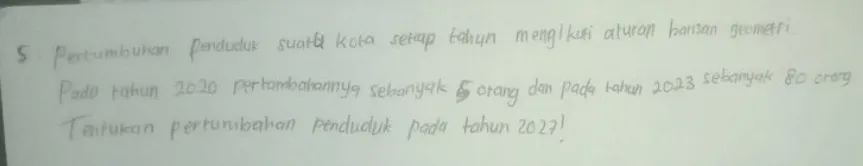 5. Pertumbuhan penduduk suatu kota setiap tahun mengikuti aturan barisan geometri.
Pada tahun 2020 pertambahannya sebanyak 5 orang dan pada tahun 2023 sebanyak 80 orang
Tentukan pertumbahan penduduk pada tahun 2027!